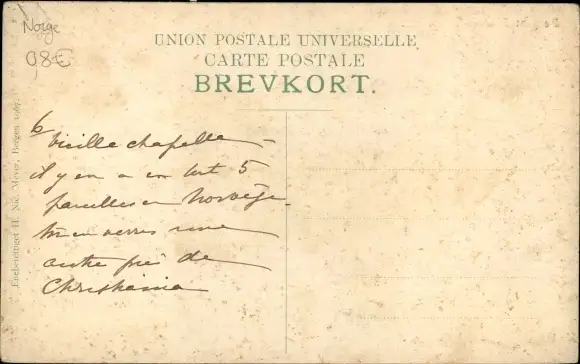 Norge
98€
UNION POSTALE UNIVERSELLE
CARTE POSTALE
BREVKORT.
6
Vieille chapelle -
il y en a en tout 5
pareilles en Norvège.
verras une
autre près de
Christiania
Eneberettiget H. Nic. Meyer, Bergen